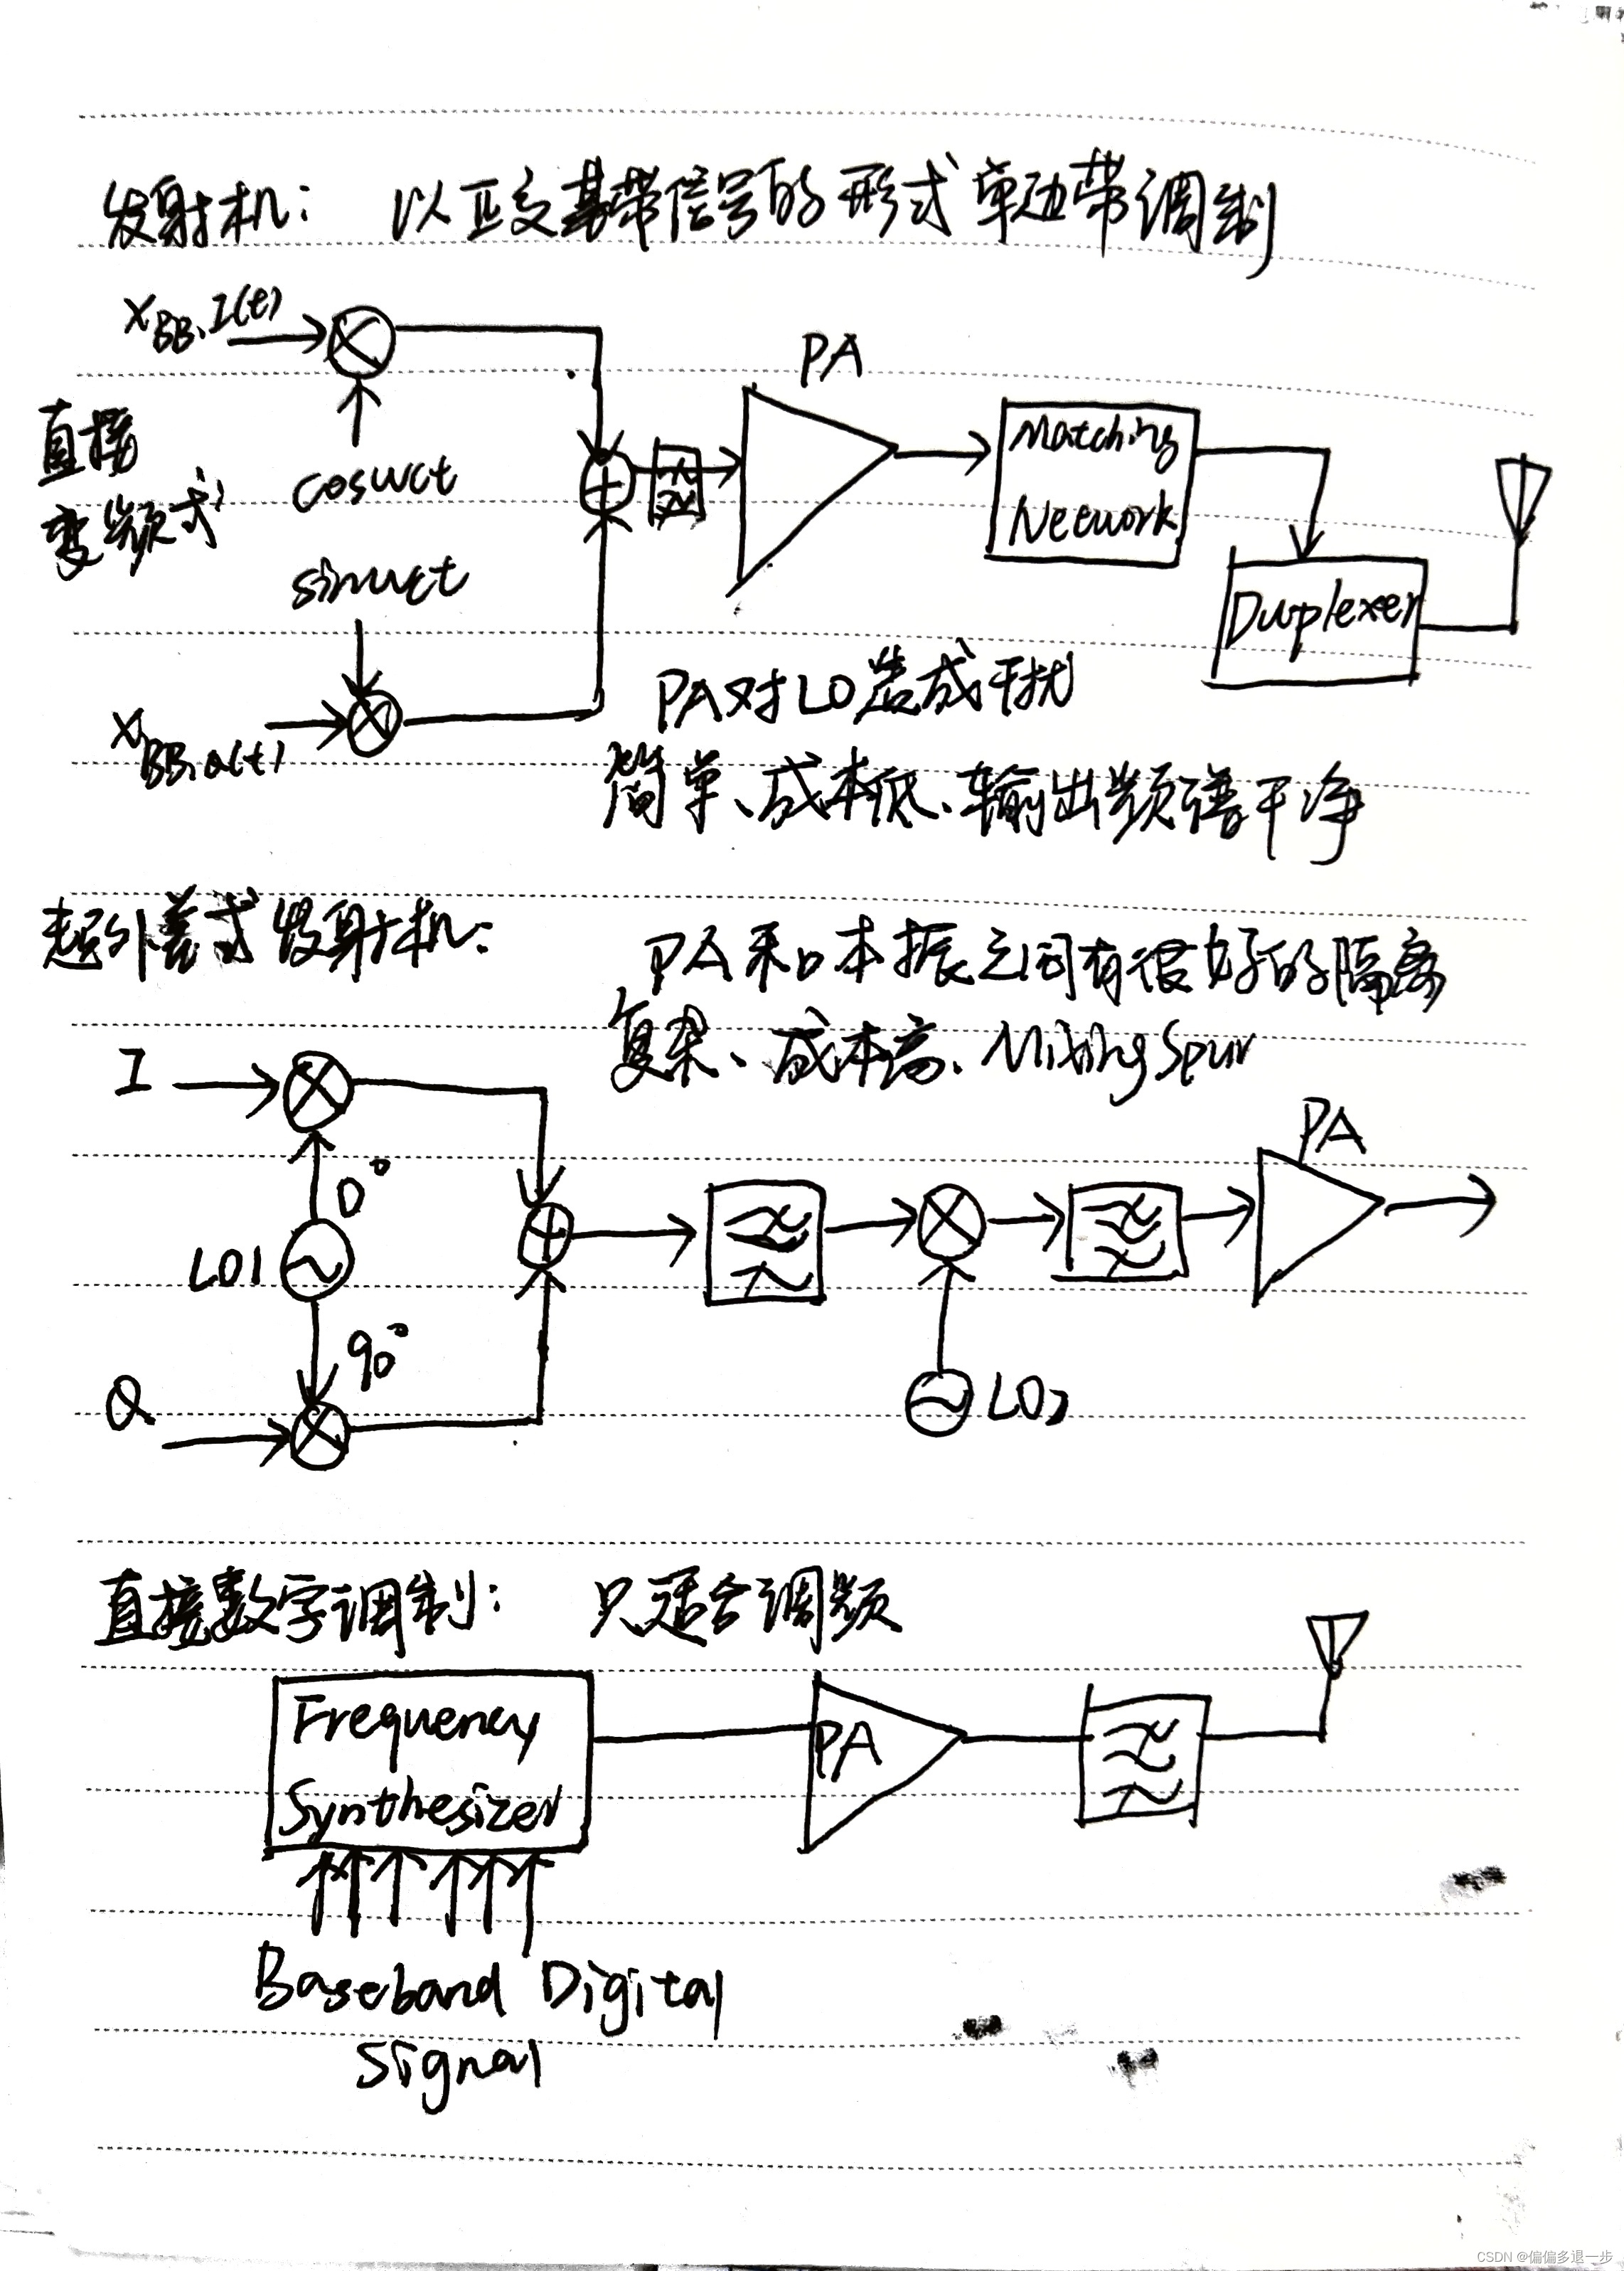 发射机: 以正交基带信号的形式单边带调制
xBB,I(t)
PA
直接
变频式
cosωct
Matching
Network
sinωct
Duplexer
xBB,Q(t)
PA对LO造成干扰
简单、成本低、输出频谱干净
超外差式发射机:
PA和本振之间有很好的隔离
复杂、成本高、Mixing Spur
I
PA
0°
LO1
90°
Q
LO2
直接数字调制: 只适合调频
Frequency
Synthesizer
PA
Baseband Digital
Signal
CSDN @偏偏多退一步